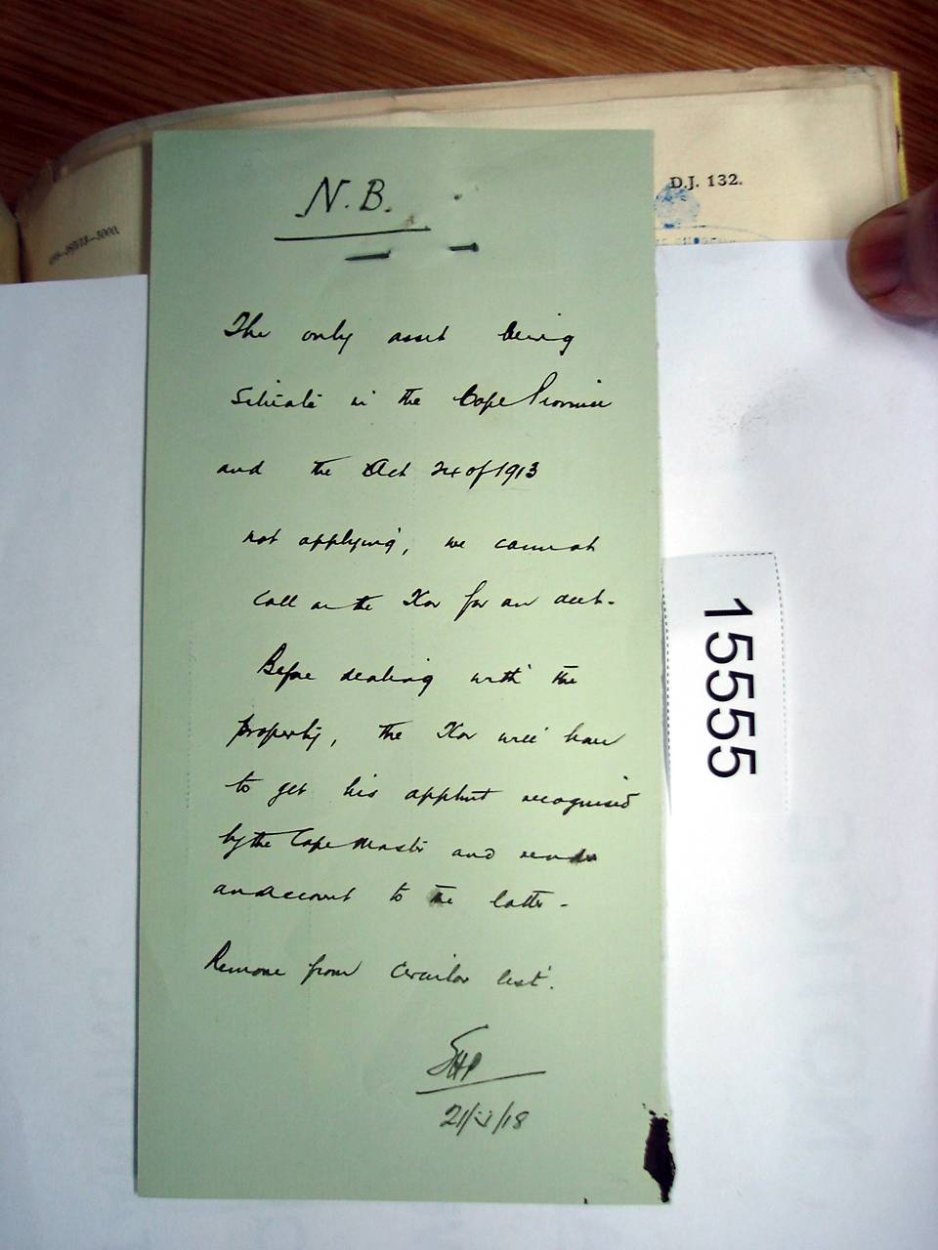 D.J. 132.
N.B.
The only asset being
Situate in the Cape Province
and the Act 24 of 1913
not applying, we cannot
call on the Xor for an acct.
Before dealing with the
property, the Xor will have
to get his apptmt recognised
by the Cape Master and render
an account to the latter.
Remove from Circular list.
21/ /18
15555